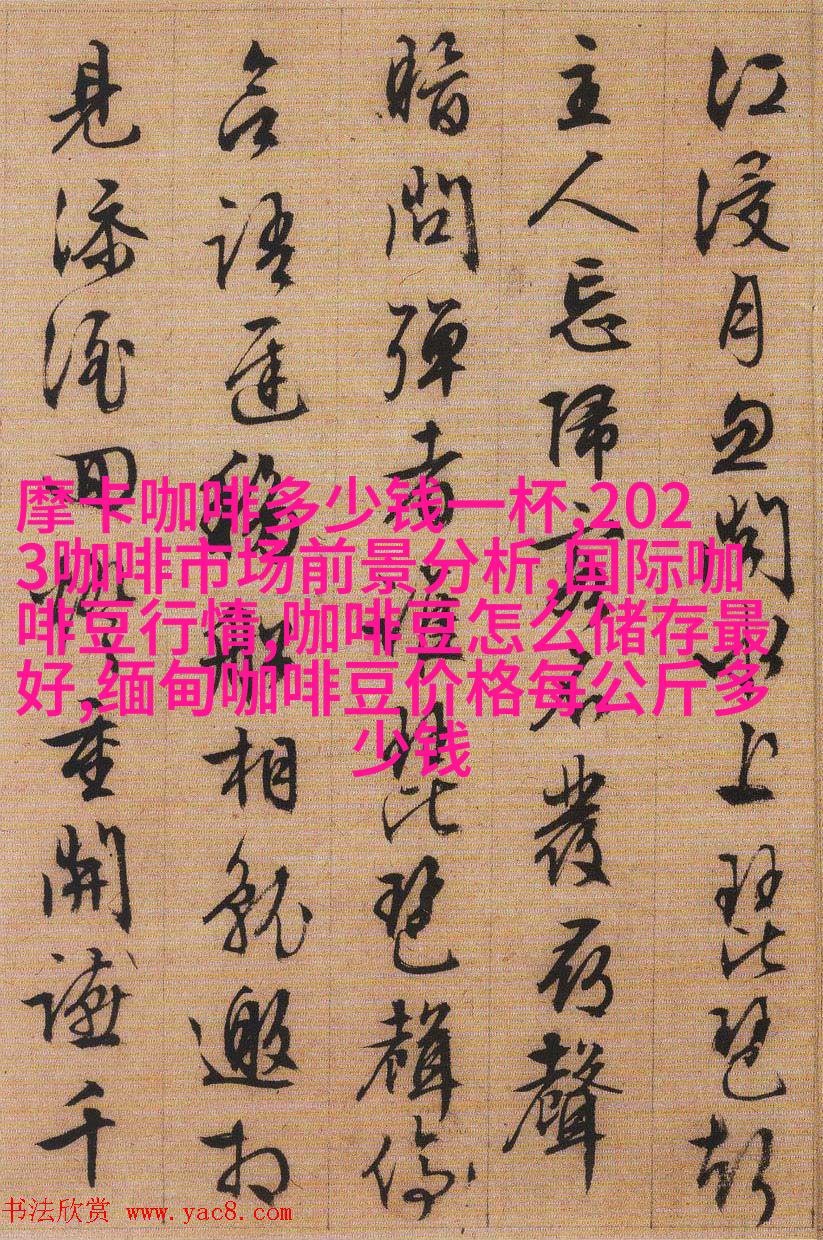 江浸月忽聞水上琵琶声
主人忘歸客不發尋聲
暗問彈者誰琵琶聲停
語遲移船相就邀相
見添酒回燈重開讌千
摩卡咖啡多少钱一杯,202
3咖啡市场前景分析,国际咖
啡豆行情,咖啡豆怎么储存最
好,缅甸咖啡豆价格每公斤多
少钱
书法欣赏 www.yac8.com